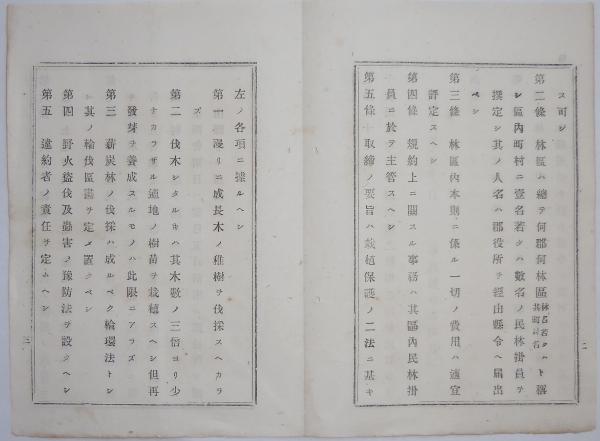 ス可シ
第二條 林區ハ總テ何郡何林區 林名若クハ其町村名 ト稱
シ區內町村ニ壹名若クハ數名ノ民林掛員ヲ
撰定シ其ノ人名ハ郡役所ヲ經由縣令ヘ屆出
ヘシ
第三條 林區內本則ニ係ル一切ノ費用ハ適宜
評定スヘシ
第四條 規約上ニ關スル事務ハ其區內民林掛
員ニ於テ主管スヘシ
第五條 取締ノ要旨ハ栽植保護ノ二法ニ基キ
二
左ノ各項ニ據ルヘシ
第一 漫リニ成長木ノ稚樹ヲ伐採スヘカラ
ス
第二 伐木シタルキハ其木數ノ三倍ヨリ少
ナカラザル適地ノ樹苗ヲ栽植スヘシ但再
發芽ヲ養成スルモノハ此限ニアラズ
第三 薪炭林ノ伐採ハ成ルベク輪環法トシ
其ノ輪伐區畫ヲ定メ置クベシ
第四 野火盜伐及蟲害ノ豫防法ヲ設クヘシ
第五 違約者ノ責任ヲ定ムヘシ